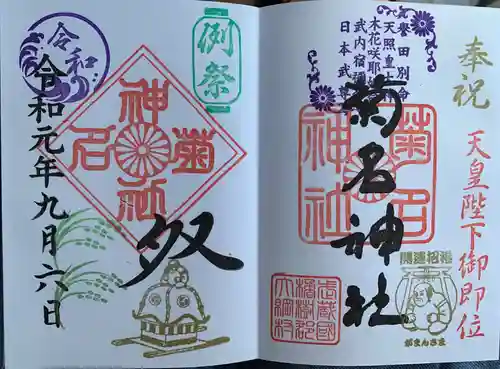 奉祝
天皇陛下御即位
誉田別命
天照皇大神
木花咲耶姫命
武内宿禰命
日本武尊
菊名神社
菊名
神社
武蔵國
橘樹郡
大綱村
開運招福
がまんさま
例祭
令和
神社
菊名
祭
令和元年九月六日